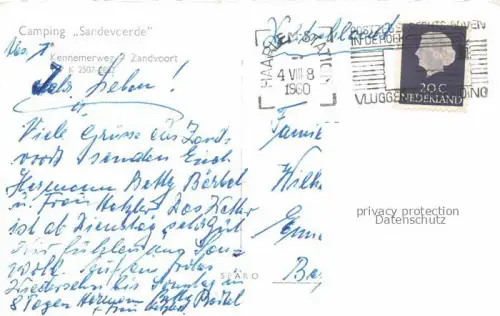 Camping „Sandevoerde"
Kennemerweg Zandvoort
K 2507
Ihr Lieben!
Viele Grüsse aus Zand-
voort senden Euch
Hermann Betty Bärbel
u. Frau Das Wetter
ist ab Dienstag sehr gut
Wir fühlen uns sau-
wohl. Auf ein frohes
Wiedersehn bis Sonntag in
8 Tagen Hermann Betty Bärbel
+ Frau
HAARLEM STATION
4 VIII 8
1960
IN DE
VLUGGE
20 C
NEDERLAND
Famili
Wilhe
privacy protection
Datenschutz
SPARO